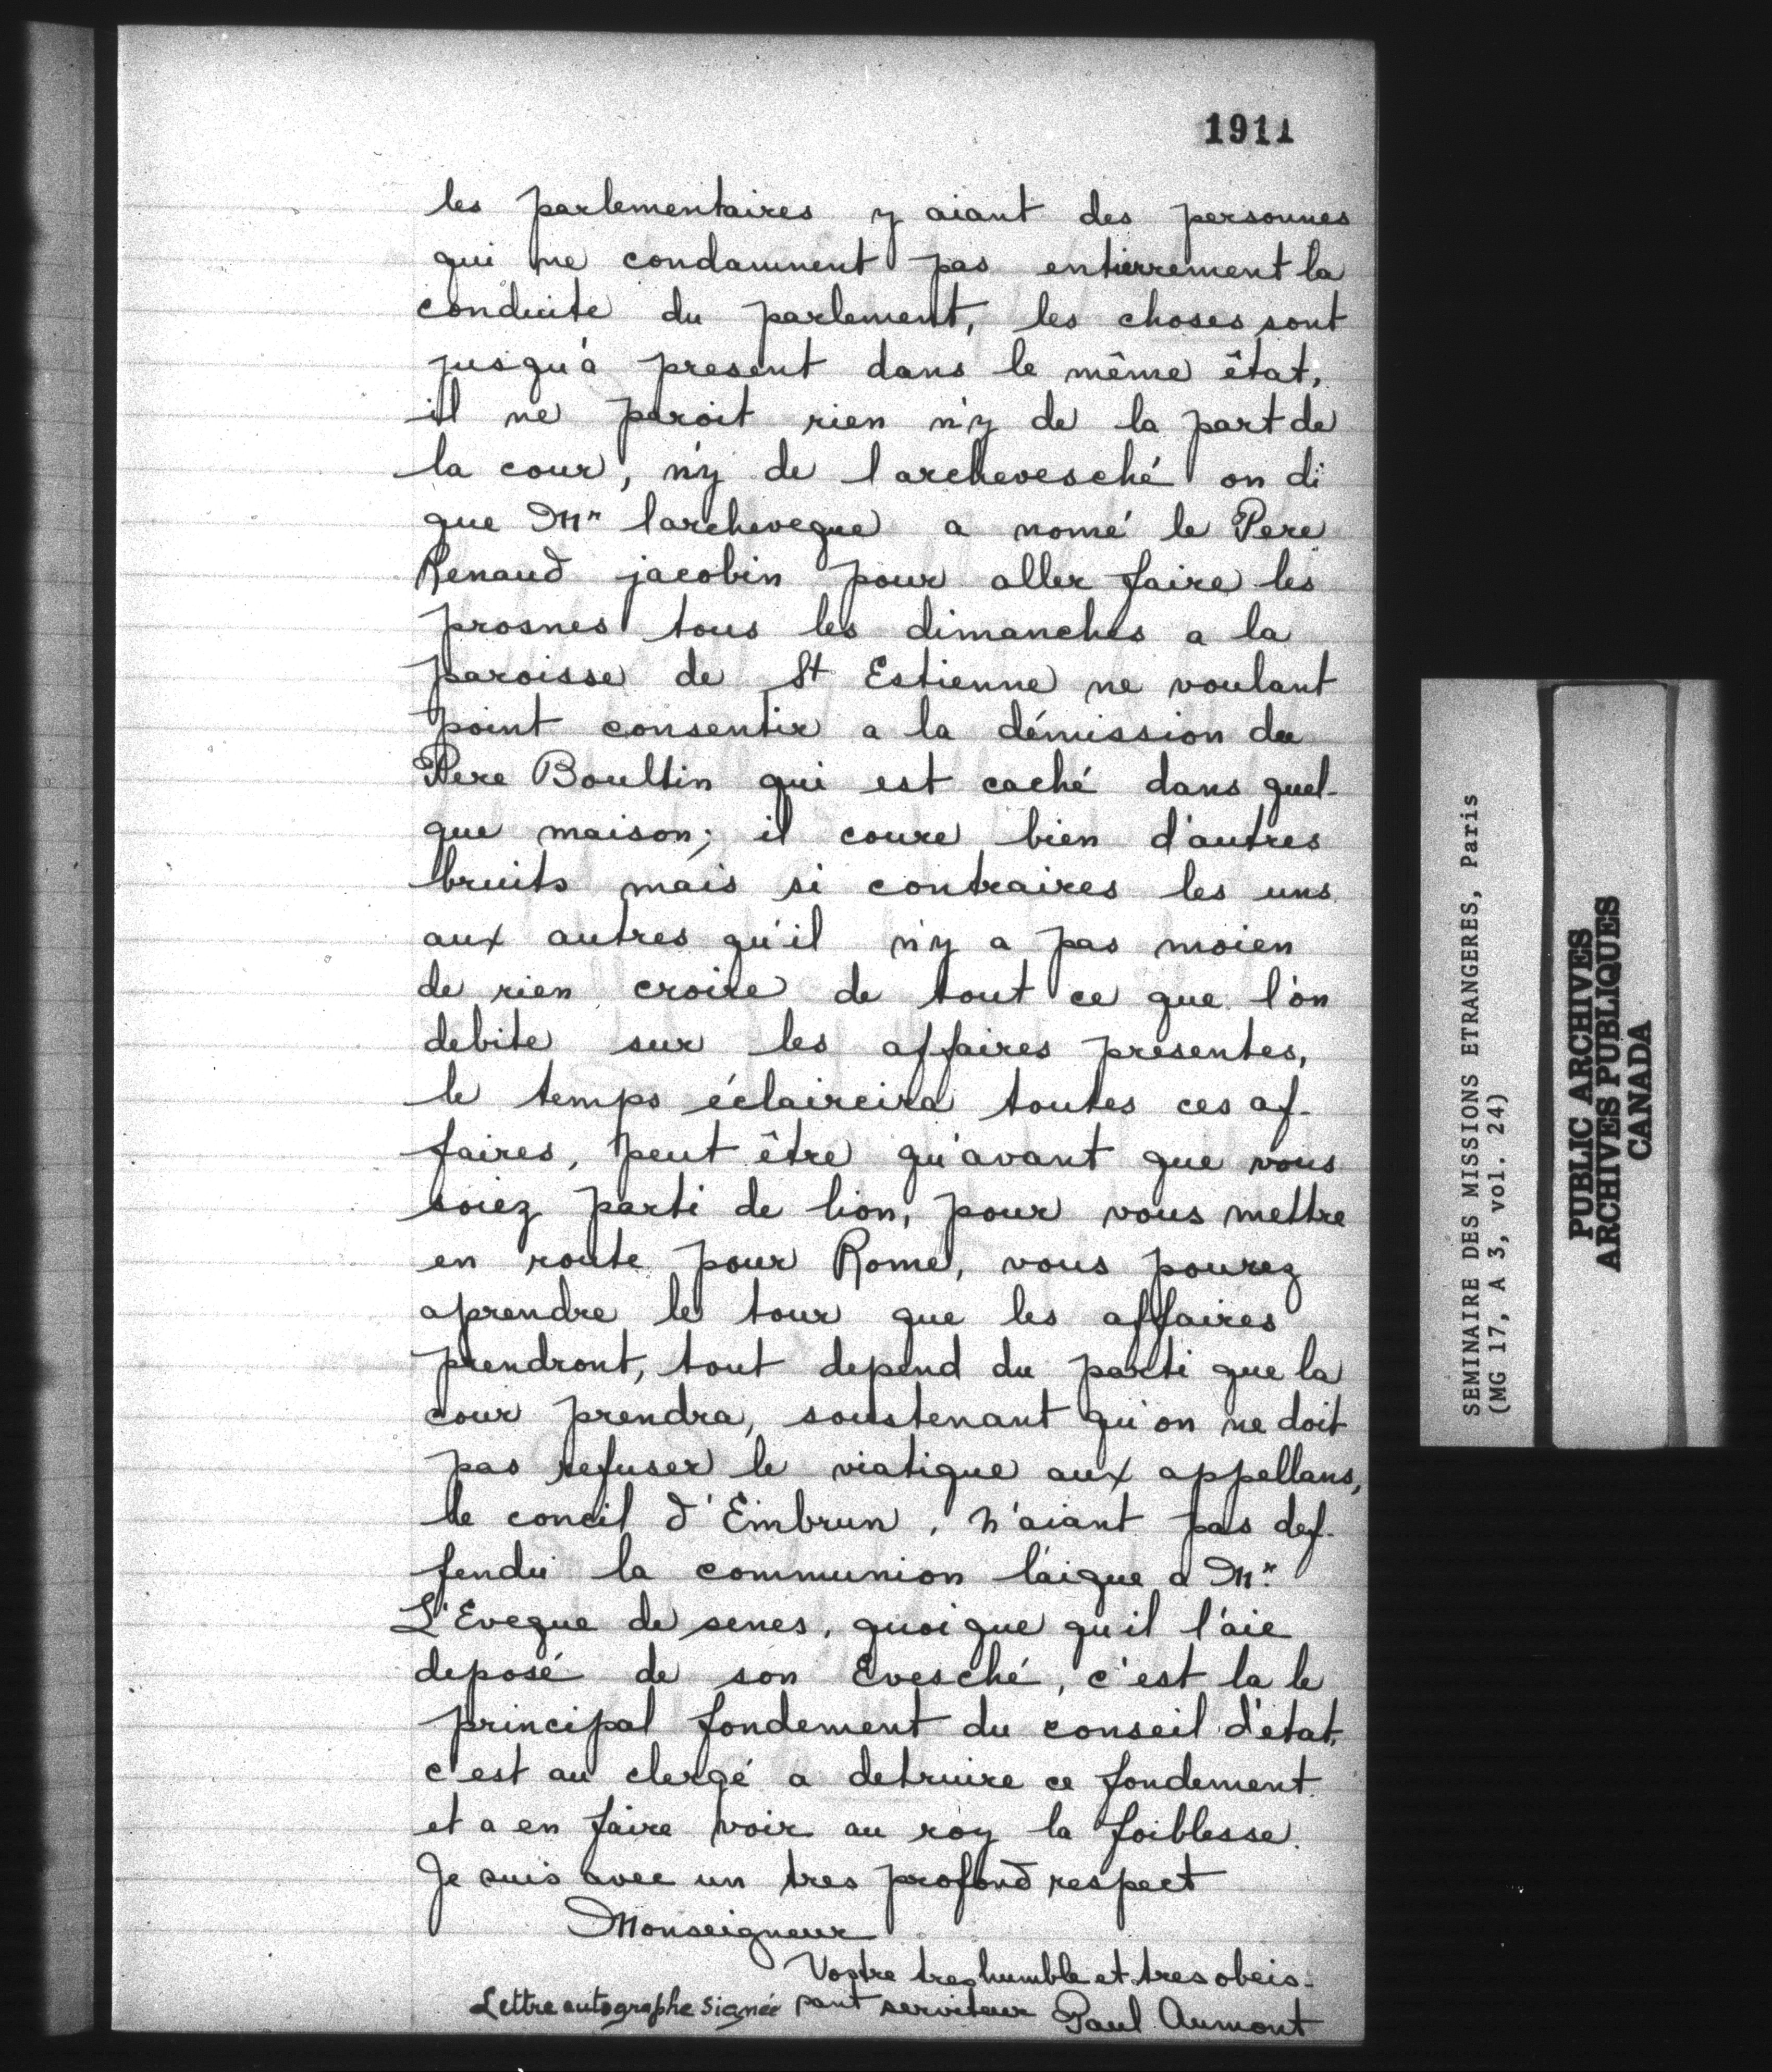 1911
les parlementaires y aiant des personnes
qui ne condamnent pas entierrement la
conduite du parlement, les choses sont
jusqu'à present dans le même êtat,
il ne paroit rien n'y de la part de
la cour, n'y de l'archevesché on di
que Mr larcheveque a nomé le Pere
Renaud jacobin pour aller faire les
prosnes tous les dimanches a la
paroisse de St Estienne ne voulant
point consentir a la démission du
Pere Boultin qui est caché dans quel-
que maison; il coure bien d'autres
bruits mais si contraires les uns
aux autres qu'il n'y a pas moien
de rien croire de tout ce que l'on
debite sur les affaires presentes,
le temps éclaircira toutes ces af-
faires, peut être qu'avant que vous
soiez parti de lion, pour vous mettre
en route pour Rome, vous pourez
aprendre le tour que les affaires
prendront, tout depend du parti que la
cour prendra, soustenant qu'on ne doit
pas refuser le viatique aux appellans,
le concil d'Embrun, n'aiant pas def-
fendu la communion laïque a Mr.
L'Eveque de senes, quoique qu'il l'aie
deposé de son Evesché, c'est la le
principal fondement du conseil d'état,
c'est au clergé a detruire ce fondement
et a en faire voir au roy la foiblesse.
Je suis avec un tres profond respect
Monseigneur
Vostre tres humble et tres obeis-
sant serviteur Paul Aumont
Lettre autographe signée
SEMINAIRE DES MISSIONS ETRANGERES, Paris
(MG 17, A 3, vol. 24)
PUBLIC ARCHIVES
ARCHIVES PUBLIQUES
CANADA